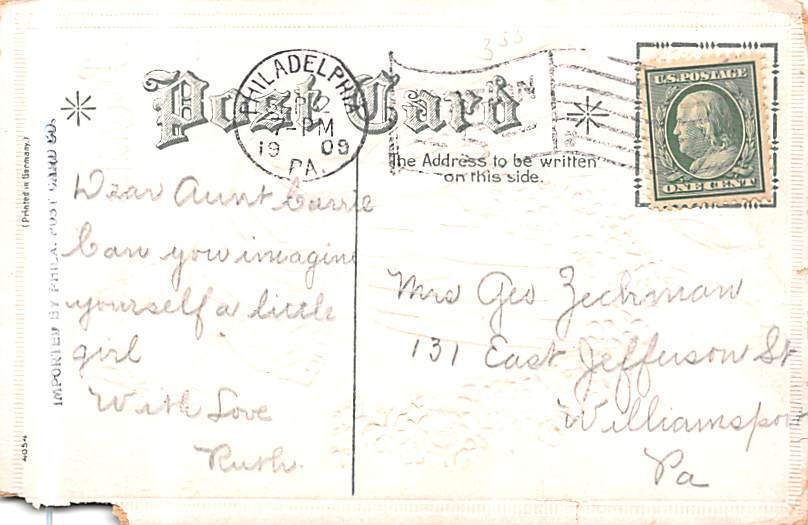 Post Card
PHILADELPHIA
7-PM
19 09
PA.
U.S. POSTAGE
ONE CENT
The Address to be written
on this side.
(Printed in Germany.)
IMPORTED BY PHILA. POST CARD CO.
4054
Dear Aunt Carrie
Can you imagine
yourself a little
girl
With Love
Ruth.
Mrs Geo Zechman
131 East Jefferson St
Williamsport
Pa